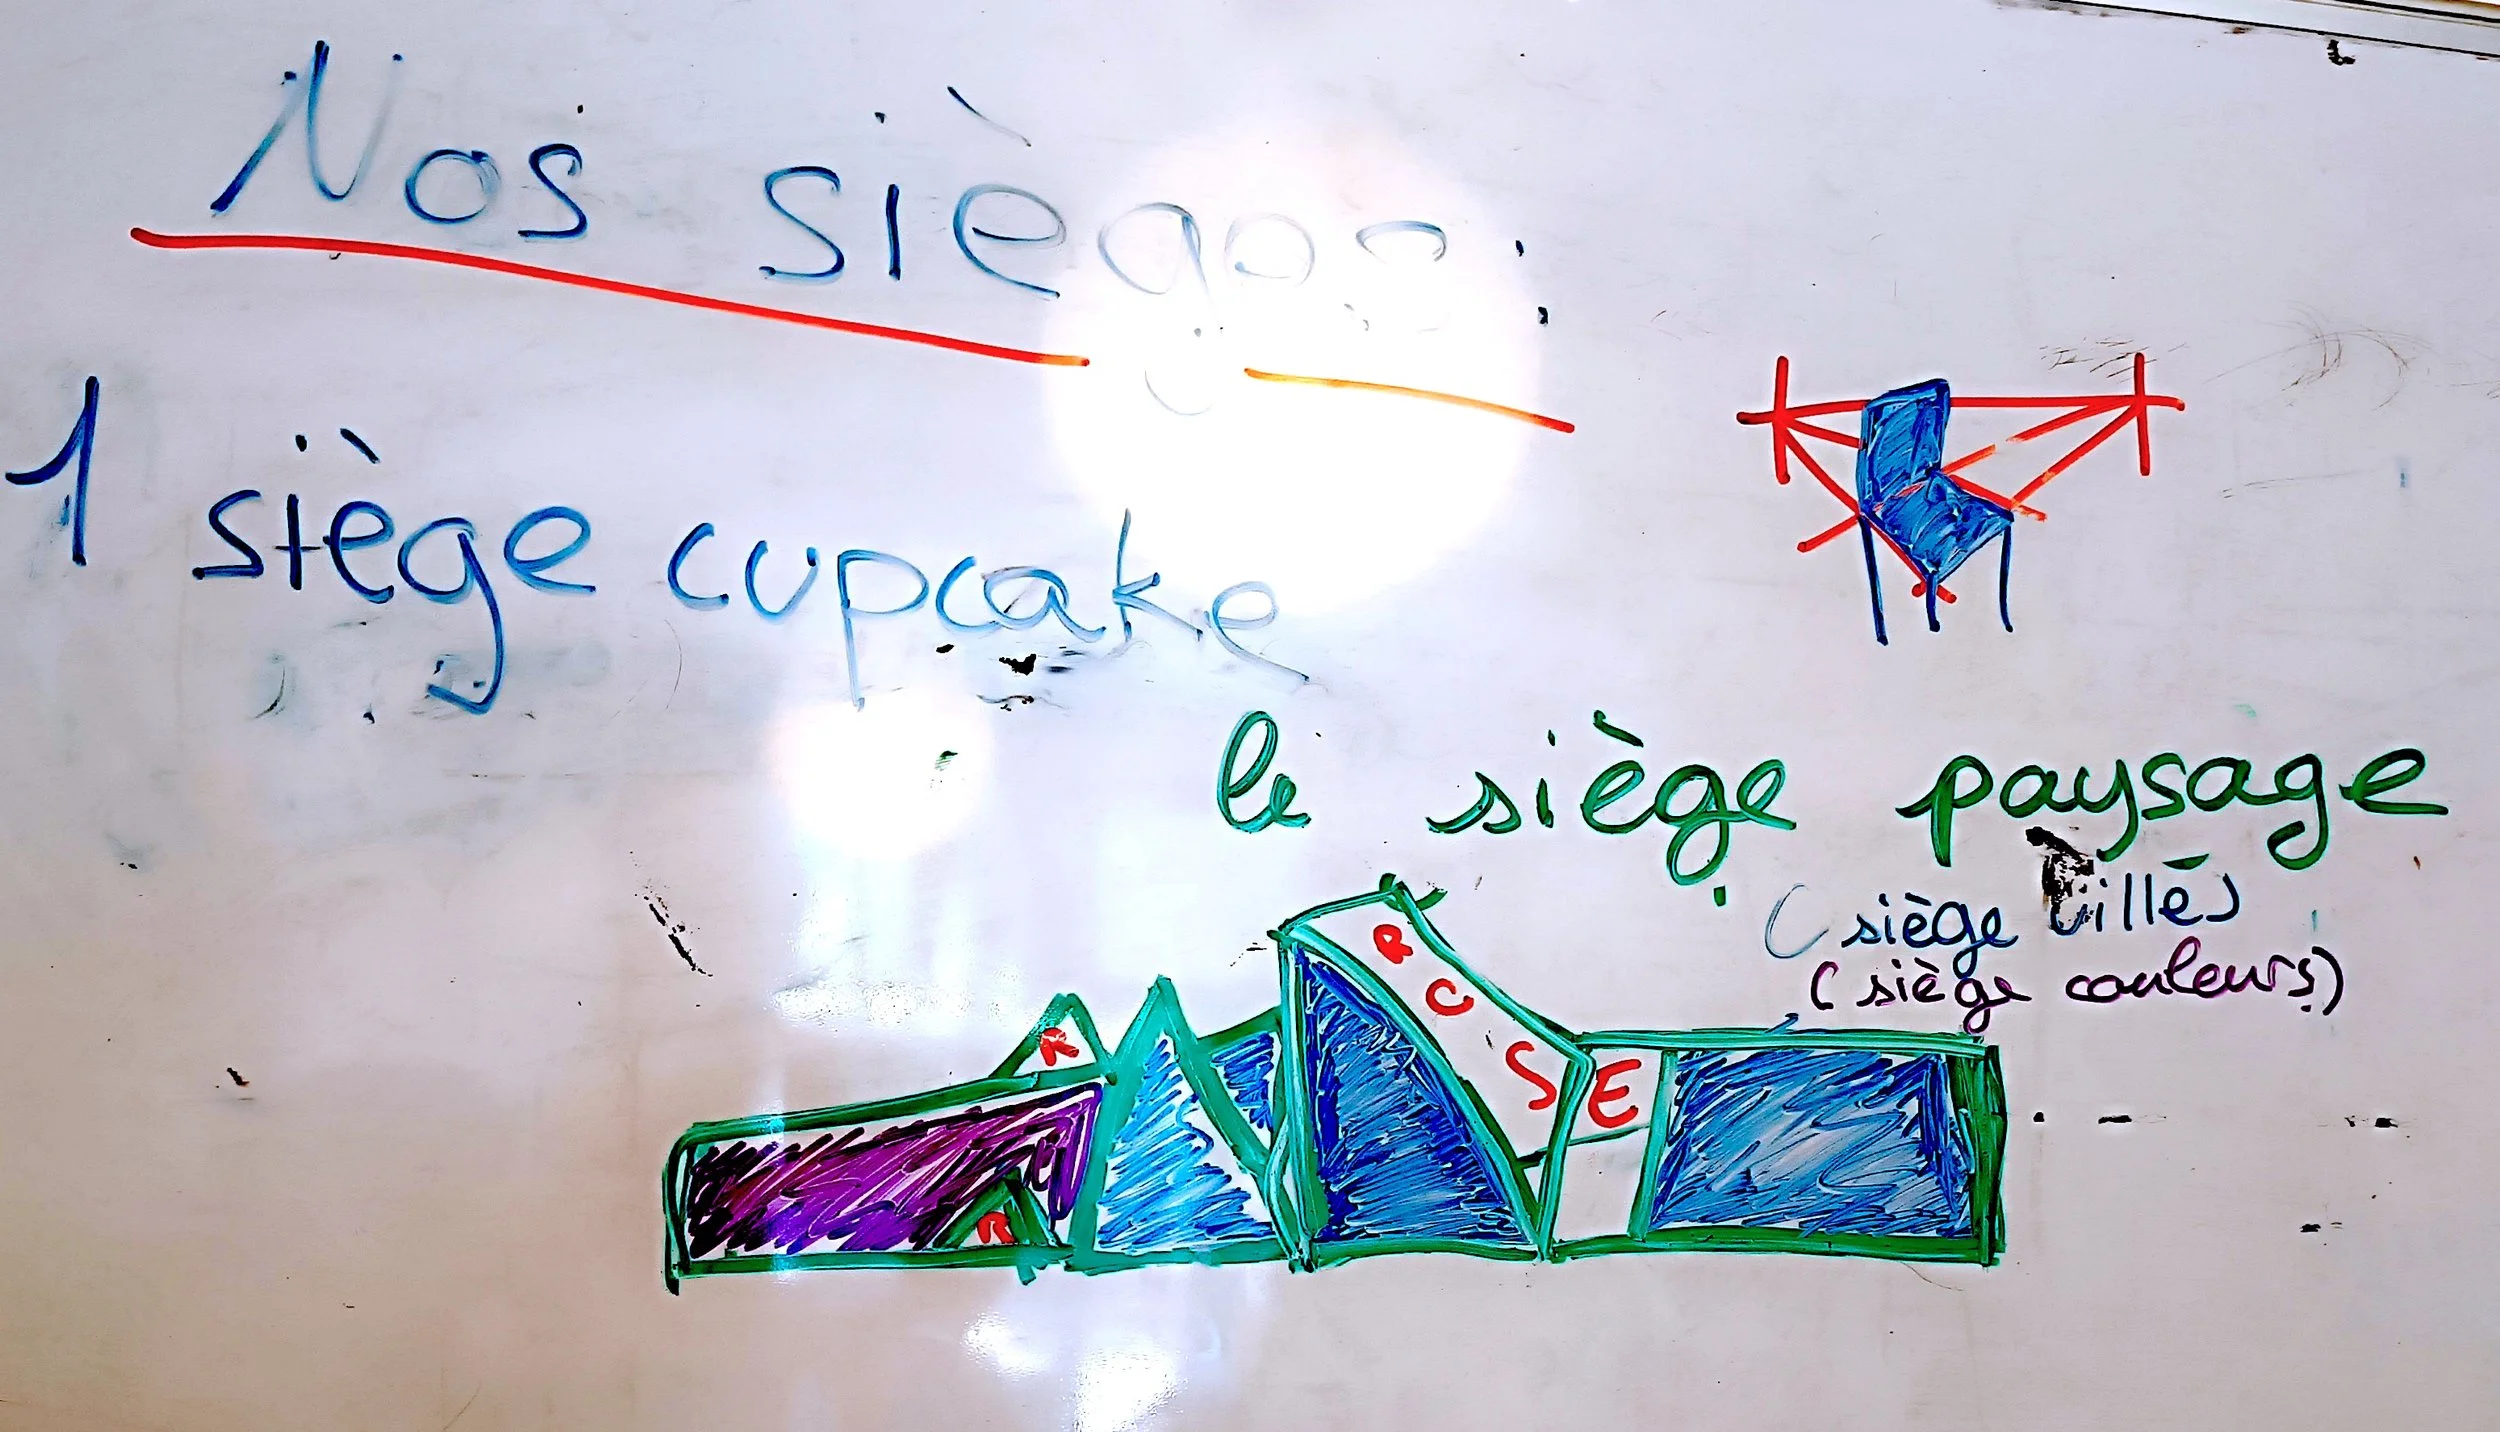 Nos sièges :
1 siège cupcake
le siège paysage
(siège ville)
(siège couleurs)
R
C
S
E
R
R